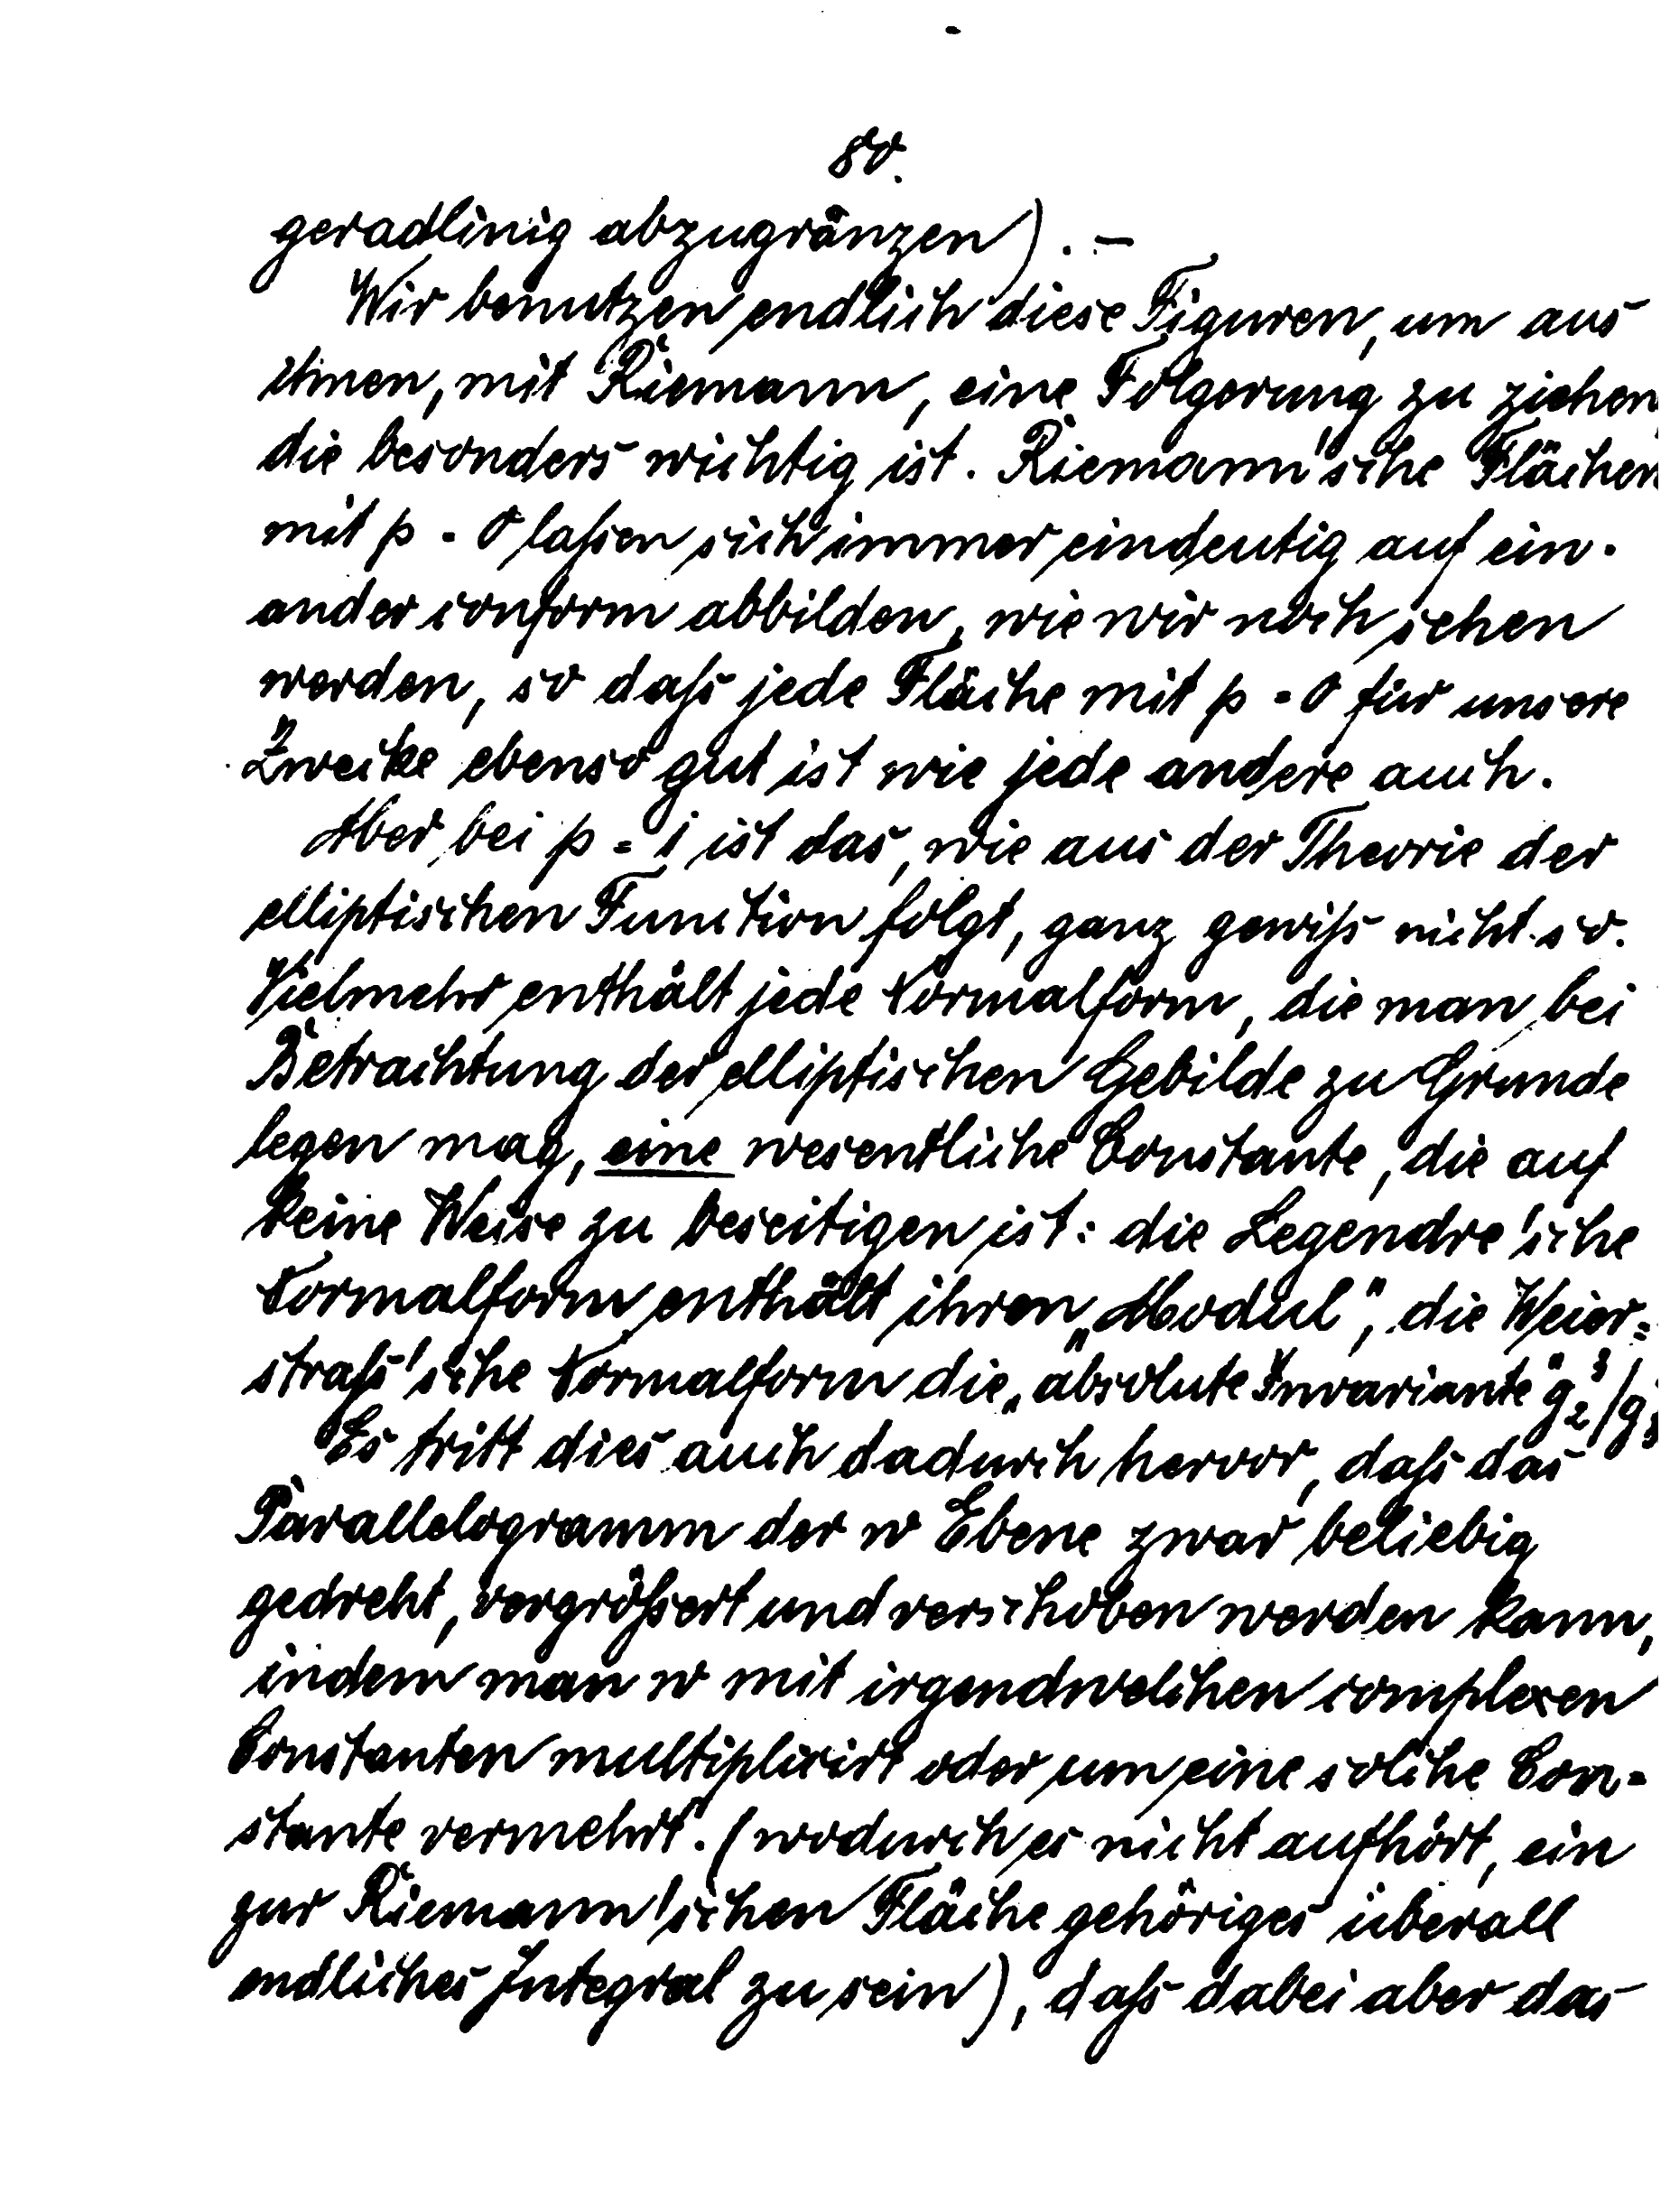 80.
geradlinig abzugränzen). –
Wir benutzen endlich diese Figuren, um aus
ihnen, mit Riemann, eine Folgerung zu ziehen,
die besonders wichtig ist. Riemann'sche Flächen
mit p = 0 laſsen sich immer eindeutig auf ein-
ander conform abbilden, wie wir noch sehen
werden, so daſs jede Fläche mit p = 0 für unsere
Zwecke ebenso gut ist wie jede andere auch.
Aber bei p = 1 ist das, wie aus der Theorie der
elliptischen Function folgt, ganz gewiſs nicht so.
Vielmehr enthält jede Normalform, die man bei
Betrachtung der elliptischen Gebilde zu Grunde
legen mag, eine wesentliche Constante, die auf
keine Weise zu beseitigen ist: die Legendre'sche
Normalform enthält ihren „Modul“, die Weier=
straſs'sche Normalform die „absolute Invariante“ g₂³/g₃
Es tritt dies auch dadurch hervor, daſs das
Parallelogramm der w Ebene zwar beliebig
gedreht, vergröſsert und verschoben werden kann,
indem man w mit irgendwelchen complexen
Constanten multiplicirt oder um eine solche Con=
stante vermehrt. (wodurch es nicht aufhört, ein
zur Riemann'schen Fläche gehöriges überall
endliches Integral zu sein), daſs dabei aber das